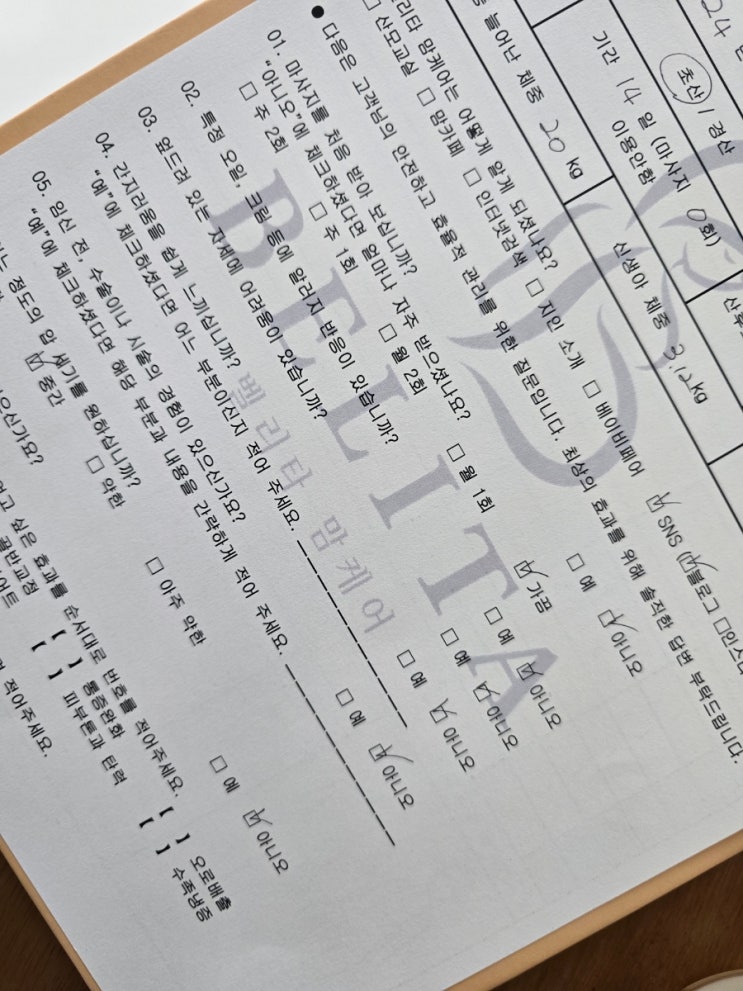 24
초산 / 경산
기간 14 일 (마사지 0 회)
이용안함
늘어난 체중 20 kg
신생아 체중 3.12 kg
리타 맘케어는 어떻게 알게 되셨나요?
□ 산모교실 □ 맘카페 □ 인터넷검색 □ 지인 소개 □ 베이비페어 ☑ SNS (☑블로그 □인스
● 다음은 고객님의 안전하고 효율적 관리를 위한 질문입니다. 최상의 효과를 위해 솔직한 답변 부탁드립니다.
01. 마사지를 처음 받아 보십니까? □ 예 ☑ 아니오
"아니오"에 체크하셨다면 얼마나 자주 받으셨나요?
□ 주 2회 □ 주 1회 □ 월 2회 □ 월 1회 ☑ 가끔
02. 특정 오일, 크림 등에 알러지 반응이 있습니까? □ 예 ☑ 아니오
03. 엎드려 있는 자세에 어려움이 있습니까? □ 예 ☑ 아니오
04. 간지러움을 쉽게 느끼십니까? □ 예 ☑ 아니오
"예"에 체크하셨다면 어느 부분이신지 적어 주세요.
05. 임신 전, 수술이나 시술의 경험이 있으신가요? □ 예 ☑ 아니오
"예"에 체크하셨다면 해당 부분과 내용을 간략하게 적어 주세요.
는 정도의 압 세기를 원하십니까?
☑ 중간 □ 약한 □ 아주 약한
으신가요? □ 예 ☑ 아니오
고 싶은 효과를 순서대로 번호를 적어주세요.
골반교정 【 】 통증완화 【 】 오로배출
【 】 피부톤과 탄력 【 】 수족냉증
적어주세요.
BELITA
벨리타 맘케어